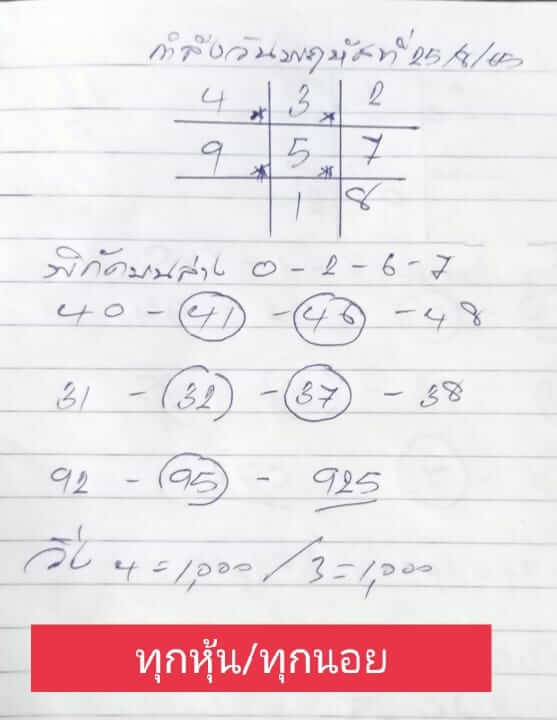 กำลังวันพฤหัสที่ 25/8/65
4 3 2
9 5 7
1 8
พิกัดบนล่าง 0-2-6-7
40 - 41 - 46 - 48
31 - 32 - 37 - 38
92 - 95 - 925
วิ่ง 4=1,000 / 3=1,000
ทุกหุ้น/ทุกนอย